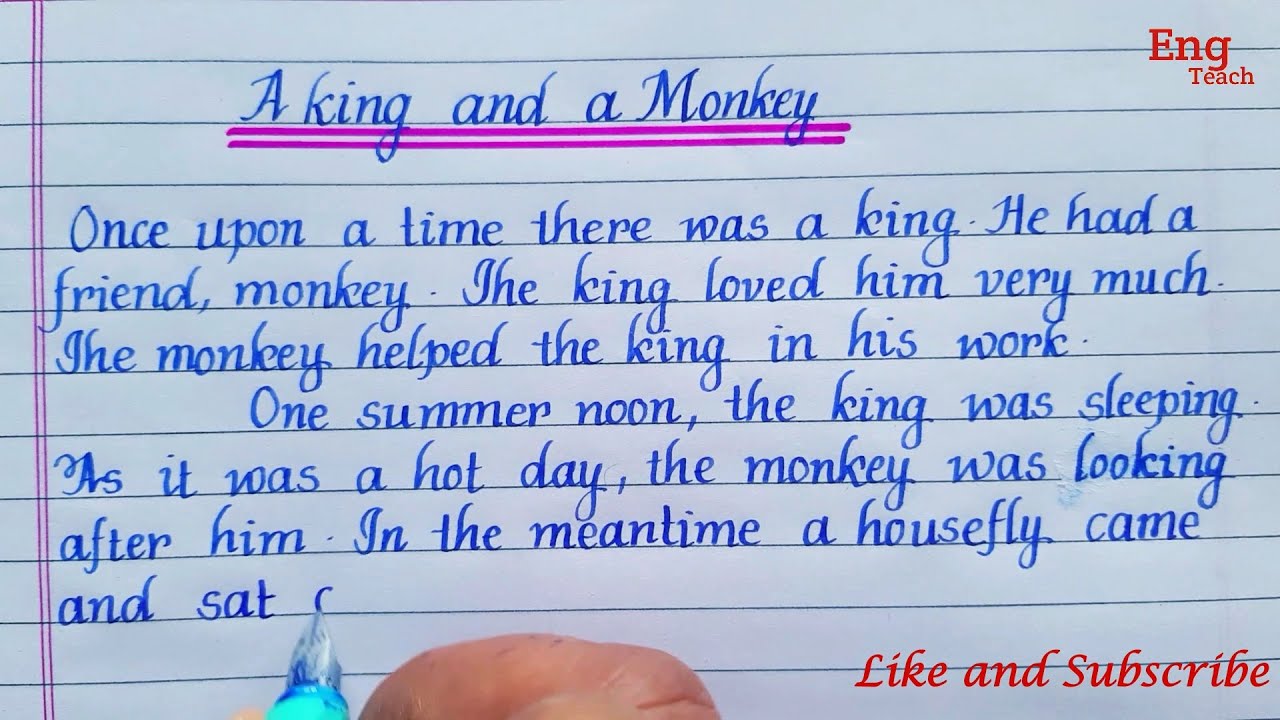 Eng
Teach
A king and a Monkey
Once upon a time there was a king. He had a
friend, monkey. The king loved him very much.
The monkey helped the king in his work.
One summer noon, the king was sleeping.
As it was a hot day, the monkey was looking
after him. In the meantime a housefly came
and sat
Like and Subscribe